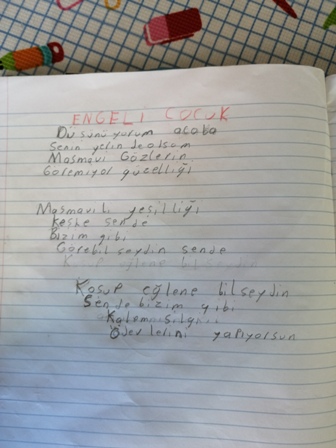 ENGELİ ÇOCUK
Düşünüyorum acaba
Senin yerin deolsam
Masmavi Gözlerin
Göremiyor güzelliği
Masmavili yeşilliği
Keşke sende
Bizim gibi
Görebilseydin sende
Koşup eğlene bilseydin
Sende bizim gibi
Kalem silgi
Ödevlerini yapıyorsun